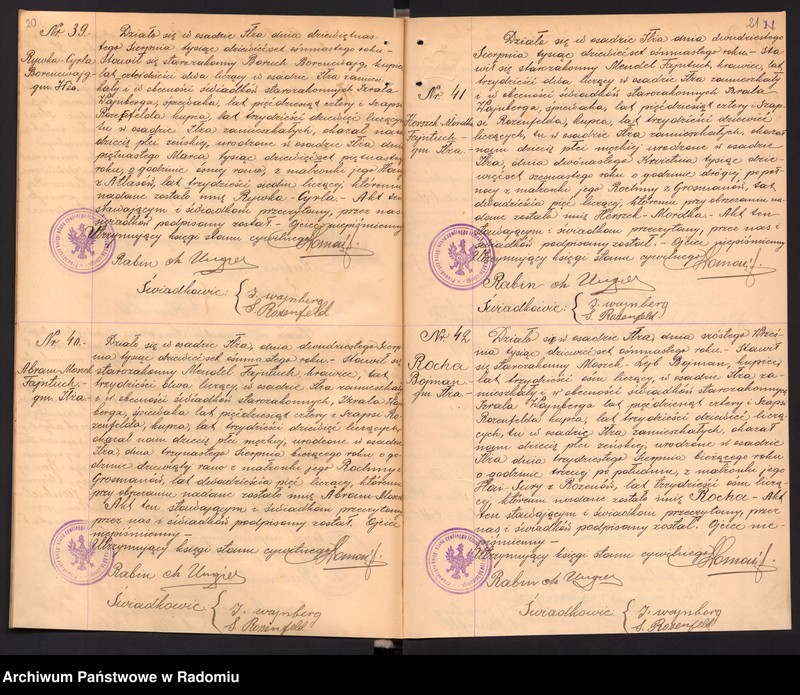 20
Nr 39.-
Rywka-Cyrla
Borenwajg
gm. Iłża.
Działo się w osadzie Iłża dnia dziewiętnas-
tego Sierpnia tysiąc dziewięćset ośmnastego roku.-
Stawił się starozakonny Boruch Borenwajg, kupiec
lat czterdzieści dwa liczący w osadzie Iłża zamiesz-
kały i w obecności świadków starozakonnych Izraela
Wajnberga, śpiewaka, lat pięćdziesiąt cztery i Szapsi
Rozenfelda kupca, lat trzydzieści dziewięć liczących
tu w osadzie Iłża zamieszkałych, okazał nam
dziecię płci żeńskiej, urodzone w osadzie Iłża dnia
piętnastego Marca tysiąc dziewięćset piętnastego
roku, o godzinie ósmej rano, z małżonki jego
z Atlasów, lat trzydzieści siedm liczącej, któremu
nadane zostało imię Rywka-Cyrla.- Akt ten
stawającym i świadkom przeczytany, przez nas i
świadków podpisany został.- Ojciec niepiśmienny
Utrzymujący księgi stanu cywilnego
Rabin Ch Ungier
Świadkowie: { J. wajnberg
S. Rozenfeld
Nr 40.-
Abram-Moszek
Fajntuch.-
gm. Iłża.-
Działo się w osadzie Iłża, dnia dwudziestego Sierp-
nia tysiąc dziewięćset ośmnastego roku.- Stawił się
starozakonny Mendel Fajntuch, krawiec, lat
trzydzieści dwa liczący, w osadzie Iłża zamieszkały
i w obecności świadków starozakonnych, Izraela Wajn-
berga, śpiewaka lat pięćdziesiąt cztery i Szapsi Ro-
zenfelda, kupca, lat trzydzieści dziewięć liczących,
okazał nam dziecię płci męzkiej, urodzone w osadzie
Iłża, dnia trzynastego Sierpnia bieżącego roku o go-
dzinie dziewiątej rano z małżonki jego Rochmy z
Grosmanów, lat dwadzieścia pięć liczącej, któremu
przy obrzezaniu nadane zostało imię Abram-Moszek
Akt ten stawającym i świadkom przeczytany
przez nas i świadków podpisany został. Ojciec
niepiśmienny.-
Utrzymujący księgi stanu cywilnego
Rabin Ch Ungier
Świadkowie: { J. wajnberg
S. Rozenfeld
21
Nr 41
Herszek-Mordka
Fajntuch.-
gm. Iłża.-
Działo się w osadzie Iłża dnia dwudziestego
Sierpnia tysiąc dziewięćset ośmnastego roku.- Sta-
wił się starozakonny Mendel Fajntuch krawiec, lat
trzydzieści dwa liczący, w osadzie Iłża zamieszkały
i w obecności świadków starozakonnych Izraela
Wajnberga, śpiewaka, lat pięćdziesiąt cztery i Szap-
si Rozenfelda, kupca, lat trzydzieści dziewięć
liczących, tu w osadzie Iłża zamieszkałych, okazał
nam dziecię płci męzkiej urodzone w osadzie
Iłża, dnia dwónastego Kwietnia tysiąc dzie-
więćset szesnastego roku o godzinie drógiej, po pół-
nocy z małżonki jego Rochmy z Grosmanów, lat
dwadzieścia pięć liczącej, któremu przy obrzezaniu na-
dane zostało imię Herszek-Mordka.- Akt ten
stawającym i świadkom przeczytany, przez nas i
świadków podpisany został.- Ojciec niepiśmienny
Utrzymujący księgi stanu cywilnego
Rabin Ch Ungier
Świadkowie: { J. wajnberg
S. Rozenfeld
Nr 42
Rocha
Bojman.-
gm. Iłża.-
Działo się w osadzie Iłża, dnia szóstego Wrześ-
nia tysiąc dziewięćset ośmnastego roku.- Stawił
się starozakonny Moszek-Zyb Bojman, kupiec,
lat trzydzieści ośm liczący, w osadzie Iłża za-
mieszkały i w obecności świadków starozakonnych
Izraela Wajnberga lat pięćdziesiąt cztery i Szapsi
Rozenfelda, kupca, lat trzydzieści dziewięć liczą-
cych, tu w osadzie Iłża zamieszkałych, okazał
nam dziecię płci żeńskiej, urodzone w osadzie
Iłża dnia trzydziestego Sierpnia bieżącego roku
o godzinie trzeciej po południu, z małżonki jego
Hai-Sury z Rozenów, lat trzydzieści ośm liczą-
cej, któremu nadane zostało imię Rocha.- Akt
ten stawającym i świadkom przeczytany, przez
nas i świadków podpisany został. Ojciec nie-
piśmienny.-
Utrzymujący księgi stanu cywilnego
Rabin Ch Ungier
Świadkowie { J. wajnberg
S. Rozenfeld
Archiwum Państwowe w Radomiu